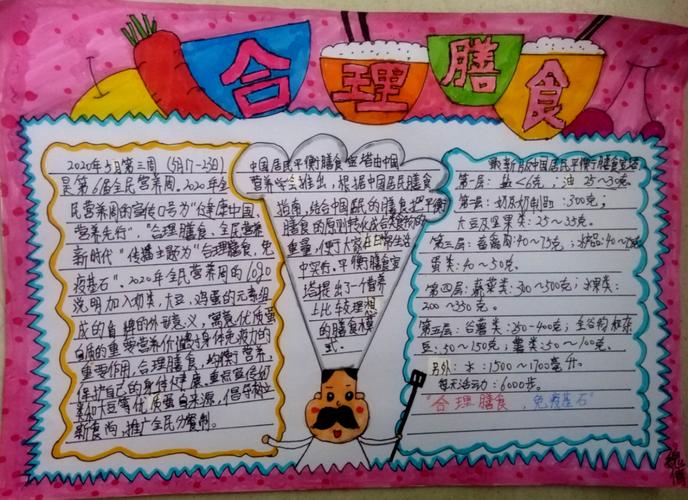 合理膳食
2020年5月第三周(5月17-23日)
是第6届全民营养周,2020年全
民营养周的宣传口号为"健康中国,
营养先行","合理膳食,全民营养
新时代"传播主题为"合理膳食,免
疫基石"。2020年全民营养周的LOGO
说明加入奶类,大豆,鸡蛋的元素组
成的盾牌的外形意义,寓意优质蛋
白质的重要营养价值对身体免疫力的
重要作用,合理膳食,均衡营养,
保护自己的身体健康,
类和大豆等优质蛋白来源,倡导树立
新食尚,推广全民分餐制。
中国居民平衡膳食宝塔由中国
营养学会推出,根据中国居民膳食
指南,结合中国居民的膳食把平衡
膳食的原则转化成各类食物的
重量,便于大家在日常生活
中实行,平衡膳食宝
塔提出了一个营养
上比较理想
的膳食模
式.
最新版中国居民平衡膳食宝塔
第一层:盐<6克;油 25~30克.
第二层:奶及奶制品:300克;
大豆及坚果类:25~35克。
第三层:畜禽肉:40~75克;水产品:40~75克
蛋类:40~50克。
第四层:蔬菜类:300~500克;水果类:
200~350克。
第五层:谷薯类:250~400克;全谷物和杂
豆:50~150克;薯类:50~100克。
另外:水:1500~1700毫升
每天活动:6000步。
"合理膳食,免疫基石"